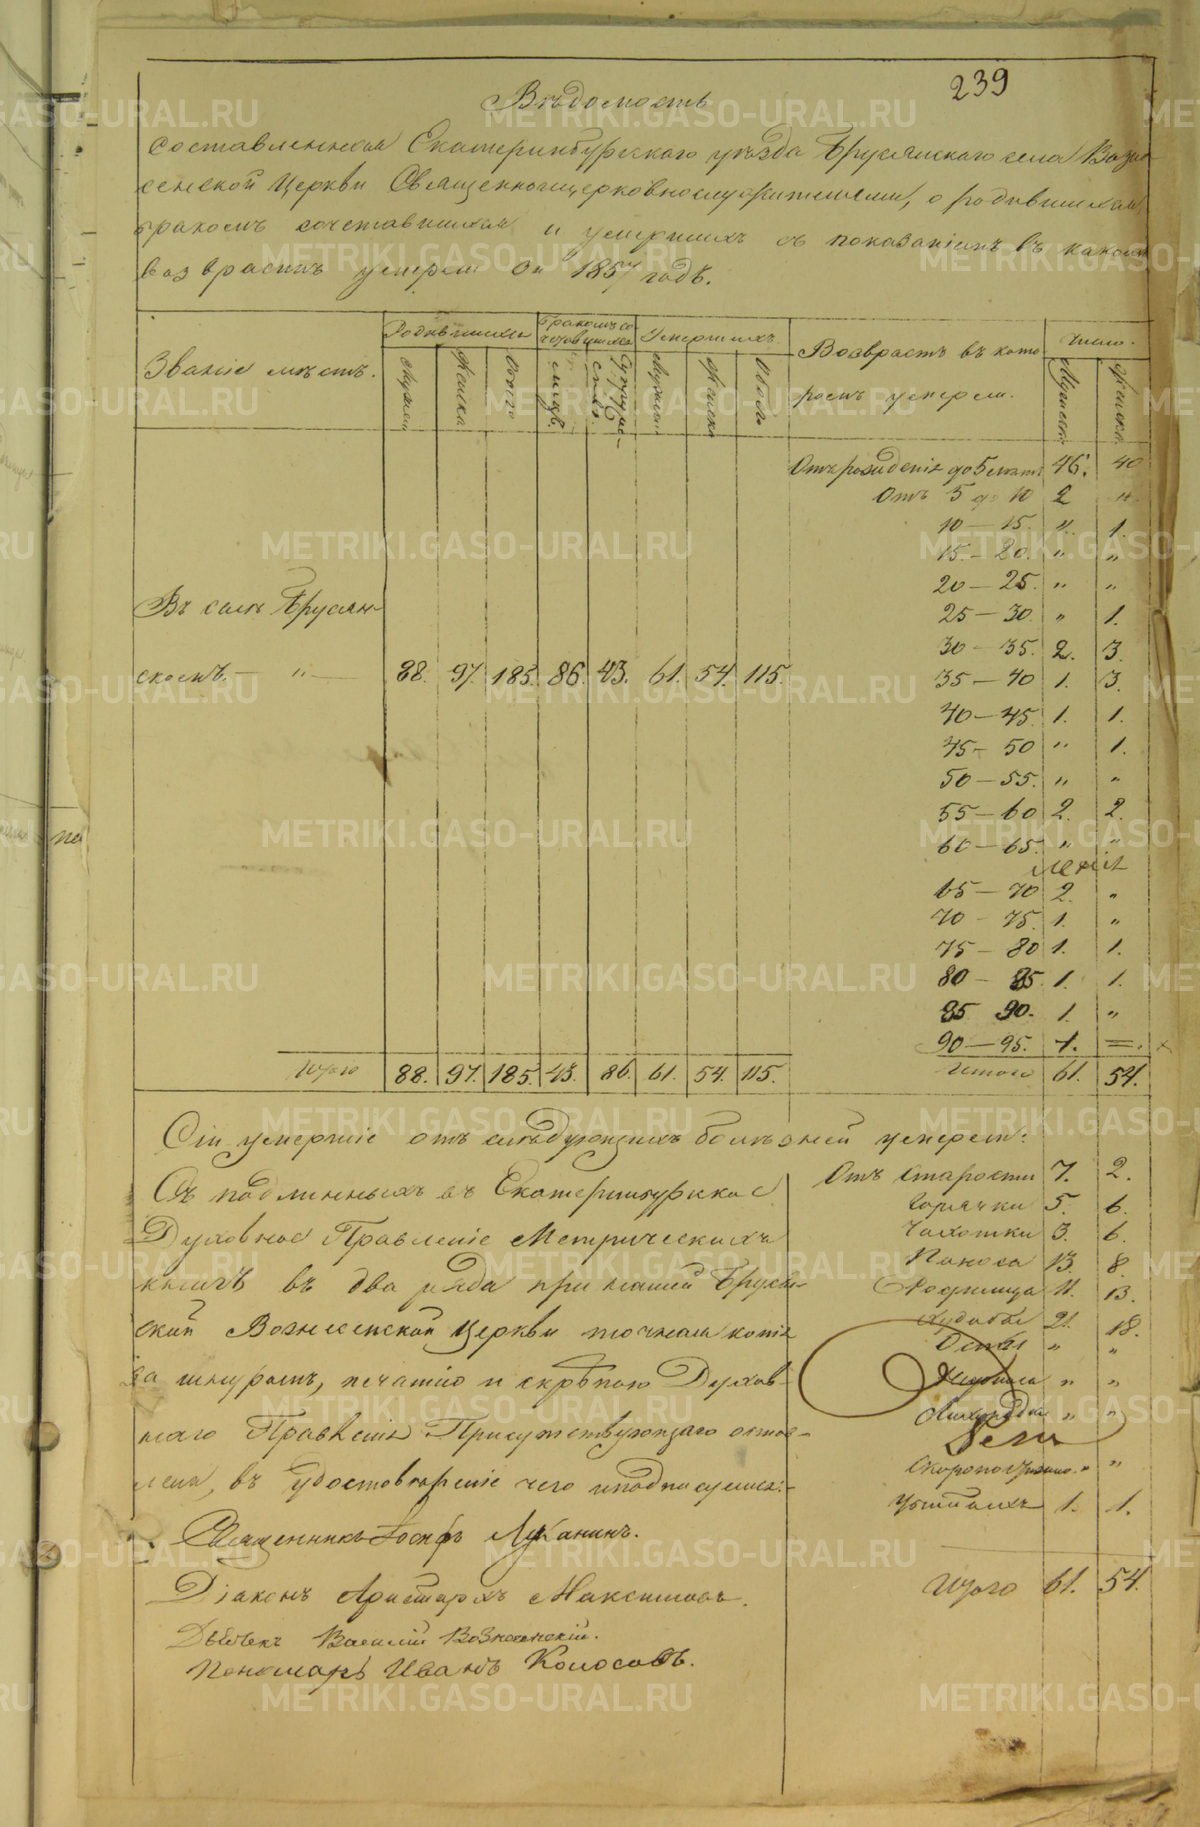 239
Вѣдомость
составленная Екатеринбургскаго уѣзда Брусянскаго села Возне-
сенской Церкви Священноицерковнослужителями, о родившихся,
бракомъ сочетавшихся и умершихъ съ показаніемъ въ какомъ
возврастѣ умерли за 1857 годъ.
Званіе мѣстъ.
Родившихся
Бракомъ со-
четавшихся
Умершихъ.
Возврастъ въ кото
ромъ умерли.
Число.
Мужска
Женска
Обоего
Супруже-
ствъ.
Мужска
Женска
Обоего
Мужска
Женска
Отъ рожденія до 5 лѣтъ 46. 40
Отъ 5 до 10 2 "
10 — 15. " 1.
15. — 20. " "
20 — 25. " "
Въ селѣ Брусян-
25 — 30. " 1.
30 — 35. 2. 3.
скомъ. — " — 88. 97. 185. 86. 43. 61. 54. 115.
35 — 40 1. 3.
40 — 45. 1. 1.
45 — 50 " 1.
50 — 55. " "
55 — 60 2. 2.
60 — 65. " "
65 — 70 2. "
70 — 75. 1. "
75 — 80 1. 1.
80 — 85. 1. 1.
85 90. 1. "
90 — 95. 1. =.
Итого 88. 97. 185. 43. 86. 61. 54. 115.
Итого 61. 54.
Сіи умершіе отъ слѣдующихъ болѣзней умерли:
Съ подлинныхъ въ Екатеринбурское
Духовное Правленіе Метрическихъ
книгъ въ два ряда при нашей Брусян-
ской Вознесенской Церкви точная копія
за шнуромъ, печатію и скрѣпою Духов-
наго Правленія Присутствующаго остав-
лена, въ удостовѣреніе чего и подписуемся:
Священникъ Іосифъ Луканинъ.
Діаконъ Аристархъ Максимовъ.
Дьячекъ Василій Вознесенскій.
Пономарь Иванъ Колосовъ.
Отъ Старости 7. 2.
Горячки 5. 6.
Чахотки 3. 6.
Поноса 13. 8.
Родимца 11. 13.
Худобы 21. 18.
Оспы " "
" "
Лихорадки " "
Скоропостижно. " "
Убитыхъ 1. 1.
Итого 61. 54.
METRIKI.GASO-URAL.RU